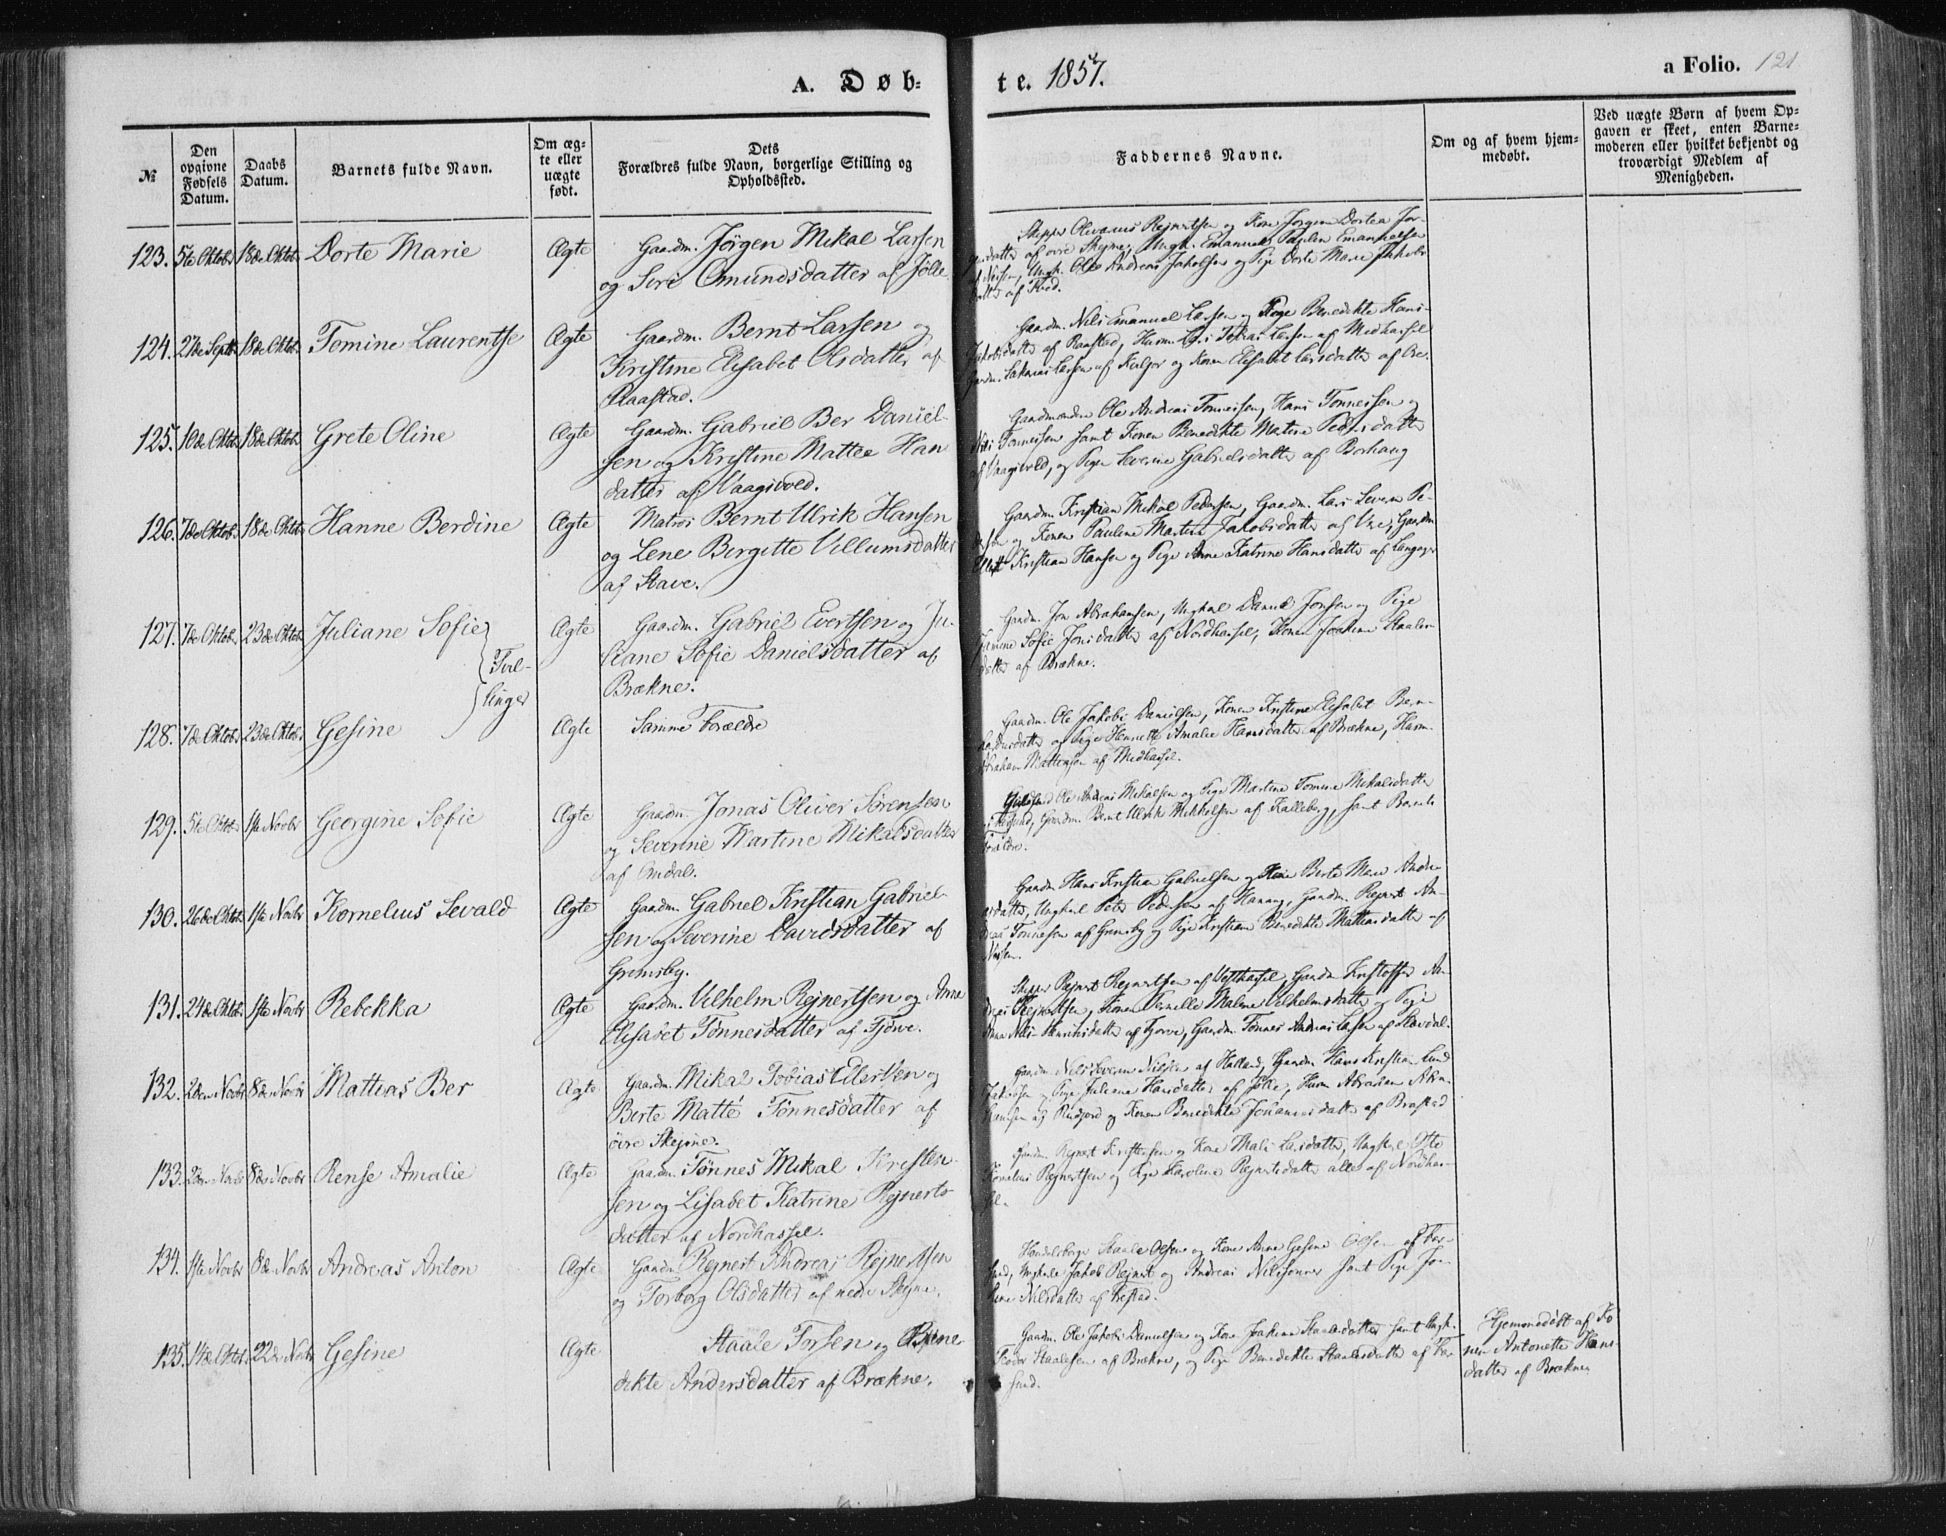 A. Døb-
te. 1857.
a Folio. 121
№
Den opgivne Fødsels Datum.
Daabs Datum.
Barnets fulde Navn.
Om ægte eller uægte født.
Dets Forældres fulde Navn, borgerlige Stilling og Opholdssted.
Faddernes Navne.
Om og af hvem hjemmedøbt.
Ved uægte Børn af hvem Opgaven er skeet, enten Barnemoderen eller hvilket bekjendt og troværdigt Medlem af Menigheden.
123. 5te Oktobr 18de Oktob. Dorte Marie Ægte Gaardm. Jörgen Mikal Larsen
og Omundsdatter af Jölle
Skipper Olevarius Rejnertsen og Kone Jorgine Dortea Jör-
af övre Skejne, Ungk. Emanuel
Ungk. Ole Andreas Jakobsen og Pige Dorte Marie Jakobs-
datter af
124. 27de Septr 18de Oktob. Tomine Laurentse Ægte Gaardm. Bernt Larsen og
Kristine Elisabet Olsdatter af
Raastad.
Gaardm. Nils Emanuel Larsen og Benedikte Hans-
Jakobsdatter af Raastad, Tobias Larsen af Midhassel
Gaardm. Larsen af og Konen Elisabet Larsdatter af Ore.
125. 10de Oktob. 18de Oktob. Grete Oline Ægte Gaardm. Gabriel Ber Daniel-
sen og Kristine Mattea Han
datter af Vaagsvold.
Gaardmændene Ole Andreas Tönnesen, Hans Tönnesen og
Tönnesen samt Konen Benedikte Pedersdatter
af Vaagsvold, og Pige Severine Gabrielsdatter af Borhaug
126. 7de Oktob. 18de Oktob. Hanne Berdine Ægte Matros Bernt Ulrik Hansen
og Lene Birgitte Villumsdatter
af Stave.
Gaardm. Kristian Mikal Pedersen, Gaardm. Lars Severin Pe-
og Konen Pauline Martine Jakobsdatter af Ore, Gaardm
Kristian Hansen og Pige Anne Katrine Hansdatter af
127. 7de Oktob. 23de Oktob. Juliane Sofie Ægte Gaardm. Gabriel Evertsen og Ju-
liane Sofie Danielsdatter af
Brækne.
Gaardm. Jon Abrahamsen, Ungkal Daniel Jonsen og Pige
Sofie Jonsdatter af Nordhassel, Konen Joakime Staales-
datter af Brækne.
Tvil-
linger
128. 7de Oktob. 23de Oktob. Gesine Ægte Samme Forældre
Gaardm. Ole Jakob Danielsen, Konen Kristine Elisabet Bern-
og Pige Henriette Amalie Hansdatter af Brækne, Husm.
Abraham af Midhassel.
129. 5te Oktob. 1ste Novbr Georgine Sofie Ægte Gaardm. Jonas Oliver Sörensen
og Severine Martine Mikalsdatter
af Omdal.
Ole Andreas Mikalsen og Pige Martine Tomine Mikalsdatter
Gaardm. Bernt Ulrik Mikkelsen af Kalleberg, samt Barnets
Forældre.
130. 26de Oktob. 1ste Novbr Kornelius Sevald Ægte Gaardm. Gabriel Kristian Gabriel-
sen og Severine Davidsdatter af
Grimsby.
Gaardm. Hans Kristian Gabrielsen og Kone Berte Marie Andre-
asdatter, Ungkal Peter Pedersen af Gaardm. Rejnert An-
dreas Tönnesen af Grimsby og Pige Benedikte Mattiasdatter af
131. 24de Oktob. 1ste Novbr Rebekka Ægte Gaardm. Vilhelm Rejnertsen og Anne
Elisabet Tönnesdatter af Fjörve.
Skipper Rejnert Rejnertsen af Vesthassel, Gaardm. Kristoffer An-
dreas Rejnertsen, Konen Pernelle Malene Vilhelmsdatter og Pige
Anne Henriksdatter af Fjörve, Gaardm. Tönnes Andreas Larsen af
132. 2den Novbr 8de Novbr Mattias Ber Ægte Gaardm. Mikal Tobias Eilertsen og
Berte Matté Tönnesdatter af
övre Skejne.
Gaardm. Nils Severin Nilsen af Halland, Gaardm. Hans Kristian Lund
Jakobsen og Pige Juliane Hansdatter af Jölle, Husm. Abraham
Hansen af og Konen Benedikte Johannesdatter af Brastad
133. 2den Novbr 8de Novbr Rense Amalie Ægte Gaardm. Tönnes Mikal Kristen-
sen og Lisabet Katrine Rejnerts
datter af Nordhassel.
Gaardm. Rejnert Kristensen og Kone Mali Larsdatter, Ungkal Otte
Kornelius Rejnertsen og Pige Karoline Rejnertsdatter alle af Nordhas-
sel.
134. 1ste Novbr 8de Novbr Andreas Anton Ægte Gaardm. Rejnert Andreas Rejnertsen
og Torborg Olsdatter af nedre Skejne.
Handelsborger Staale Olsen og Kone Anne Gesine Olsen af Far-
sund, Ungkarle Jakob Rejnert og Andreas Nilssønner samt Pige Jo-
Nilsdatter af
135. 14de Oktob. 22de Novbr Gesine Ægte Staale Torsen og Bene-
dikte Andersdatter af Brækne.
Gaardm. Ole Jakob Danielsen og Kone Joakime Staalesdatter samt Ungk.
Peder Staalesen af Brækne, og Pige Benedikte Staalesdatter af Far-
sund.
Hjemmedöbt af Ko
nen Antonette Hans-
datter af Brækne